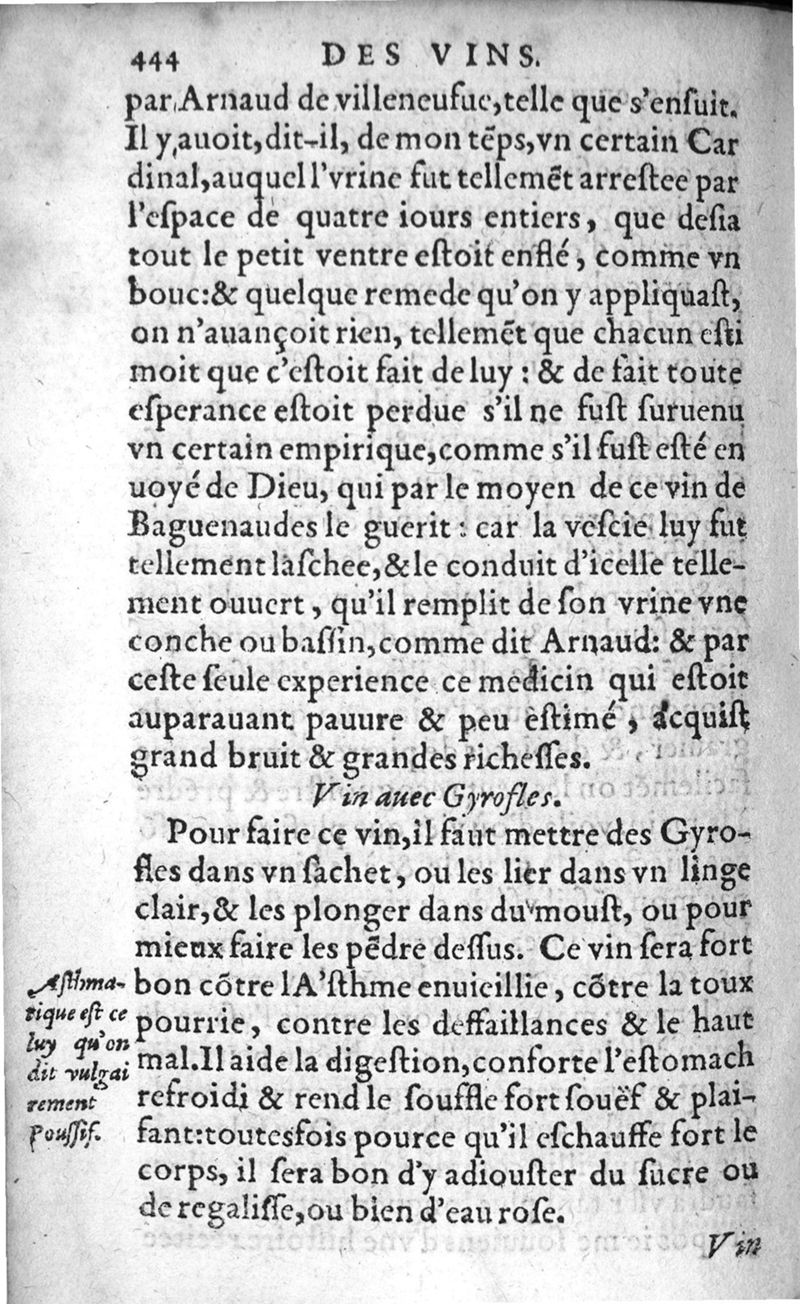 444 DES VINS.
par Arnaud de villeneufue, telle que s'enſuit.
Il y auoit, dit-il, de mon tẽps, vn certain Car
dinal, auquel l'vrine fut tellemẽt arreſtee par
l'eſpace de quatre iours entiers, que deſia
tout le petit ventre eſtoit enflé, comme vn
bouc: & quelque remede qu'on y appliquaſt,
on n'auançoit rien, tellemẽt que chacun eſti
moit que c'eſtoit fait de luy : & de fait toute
eſperance eſtoit perdue s'il ne fuſt ſuruenu
vn certain empirique, comme s'il fuſt eſté en
uoyé de Dieu, qui par le moyen de ce vin de
Baguenaudes le guerit : car la veſcie luy fut
tellement laſchee, & le conduit d'icelle telle-
ment ouuert, qu'il remplit de ſon vrine vne
conche ou baſſin, comme dit Arnaud: & par
ceſte ſeule experience ce medicin qui eſtoit
auparauant pauure & peu eſtimé, acquiſt
grand bruit & grandes richeſſes.
Vin auec Gyrofles.
Pour faire ce vin, il faut mettre des Gyro-
fles dans vn ſachet, ou les lier dans vn linge
clair, & les plonger dans du mouſt, ou pour
mieux faire les pẽdre deſſus. Ce vin ſera fort
bon cõtre lA'ſthme enuieillie, cõtre la toux
pourrie, contre les deffaillances & le haut
mal. Il aide la digeſtion, conforte l'eſtomach
refroidi & rend le ſouffle fort ſouëf & plai-
ſant: toutesfois pource qu'il eſchauffe fort le
corps, il ſera bon d'y adiouſter du ſucre ou
de regaliſſe, ou bien d'eau roſe.
Aſthma-
tique eſt ce
luy qu'on
dit vulgai
rement
Pouſſif.
Vin